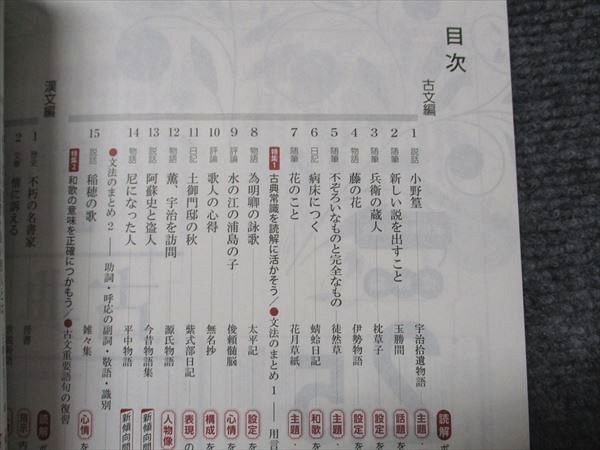 目次
古文編
1 説話 小野篁 宇治拾遺物語 主題・
2 随筆 新しい説を出すこと 玉勝間 話題 を
3 随筆 兵衛の蔵人 枕草子 設定 を
4 物語 藤の花 伊勢物語 設定 を
5 随筆 不ぞろいなものと完全なもの 徒然草 主題・
6 日記 病床につく 蜻蛉日記 和歌 を
7 随筆 花のこと 花月草紙 主題・
特集1 古典常識を読解に活かそう/●文法のまとめ1――用言
8 物語 為明卿の詠歌 太平記 設定 を
9 評論 水の江の浦島の子 俊頼髄脳 心情 を
10 評論 歌人の心得 無名抄 構成 を
11 日記 土御門邸の秋 紫式部日記 表現 の
12 物語 薫、宇治を訪問 源氏物語 人物像
13 説話 阿蘇史と盗人 今昔物語集 新傾向問
14 物語 尼になった人 平中物語 新傾向問
●文法のまとめ2――助詞・呼応の副詞・敬語・識別
15 説話 稲穂の歌 雑々集 心情 を
特集2 和歌の意味を正確につかもう/●古文重要語句の復習
漢文編
1 不朽の名書家
2 に訴える
読解